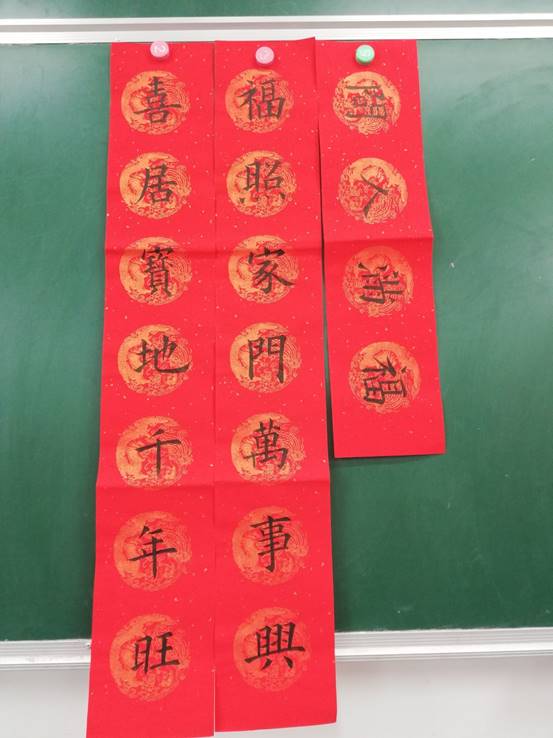 喜居寶地千年旺
福照家門萬事興
福滿人間